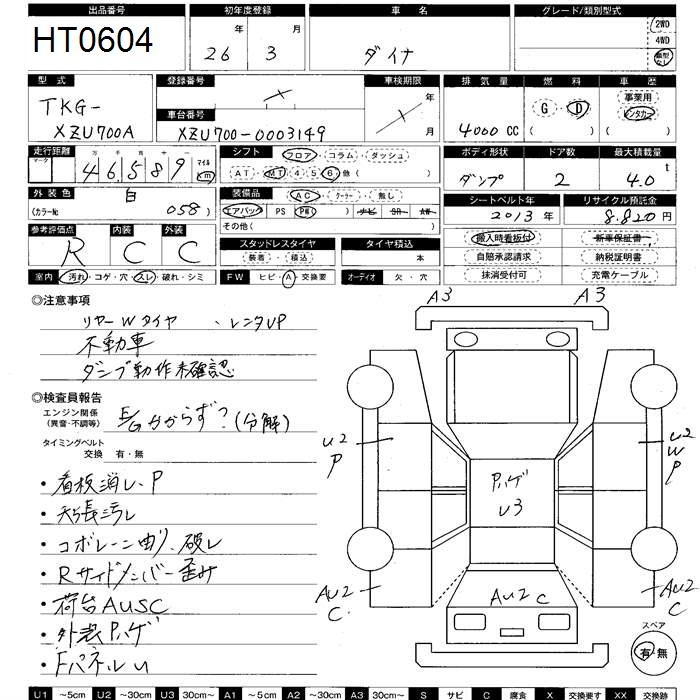 出品番号 初年度登録 車名 グレード/類別型式
HT0604 26年 3月 ダイナ 2WD
4WD
類別なし
型式 登録番号 車検期限 排気量 燃料 車歴
TKG-XZU700A × ×年月 4000CC G・D ( ) 事業用
レンタカー
( )
車台番号
XZU700-0003149
走行距離 シフト フロア・コラム・ダッシュ ボディ形状 ドア数 最大積載量
マーク 万 千 百 十 一
46,589 マイル km AT・MT 4 5 6 他( ) ダンプ 2 4.0t
外装色 白 装備品 AC・クーラー・無し シートベルト年 リサイクル預託金
(カラーNo 058) エアバッグ PS PW( ) ナビ SR AW 2013年 8.820円
その他( )
参考評価点 内装 外装 搬入時看板付 新車保証書
R C C スタッドレスタイヤ タイヤ積込 自賠承認請求 納税証明書
装着・積込 本 抹消受付可 充電ケーブル
室内 汚れ・コゲ・穴・スレ・破れ・シミ FW ヒビ・A・交換要 オーディオ 欠・穴
◎注意事項
リヤーWタイヤ、レンタUP
不動車
ダンプ動作未確認
◎検査員報告
エンジン関係
(異音・不調等) E/G分からず?(分解)
タイミングベルト
交換 有・無
・看板消し、P
・天張汚レ
・コボレーン曲り、破レ
・Rサイドメンバー歪み
・荷台AUSC
・外装Pハゲ
・FパネルU
A3 A3
U2
P
U2
W
P
Pハゲ
U3
AU2
C
AU2C
AU2
C
スペア
有・無
U1 ~5cm U2 ~30cm U3 30cm~ A1 ~5cm A2 ~30cm A3 30cm~ S サビ C 腐食 X 交換要す XX 交換跡